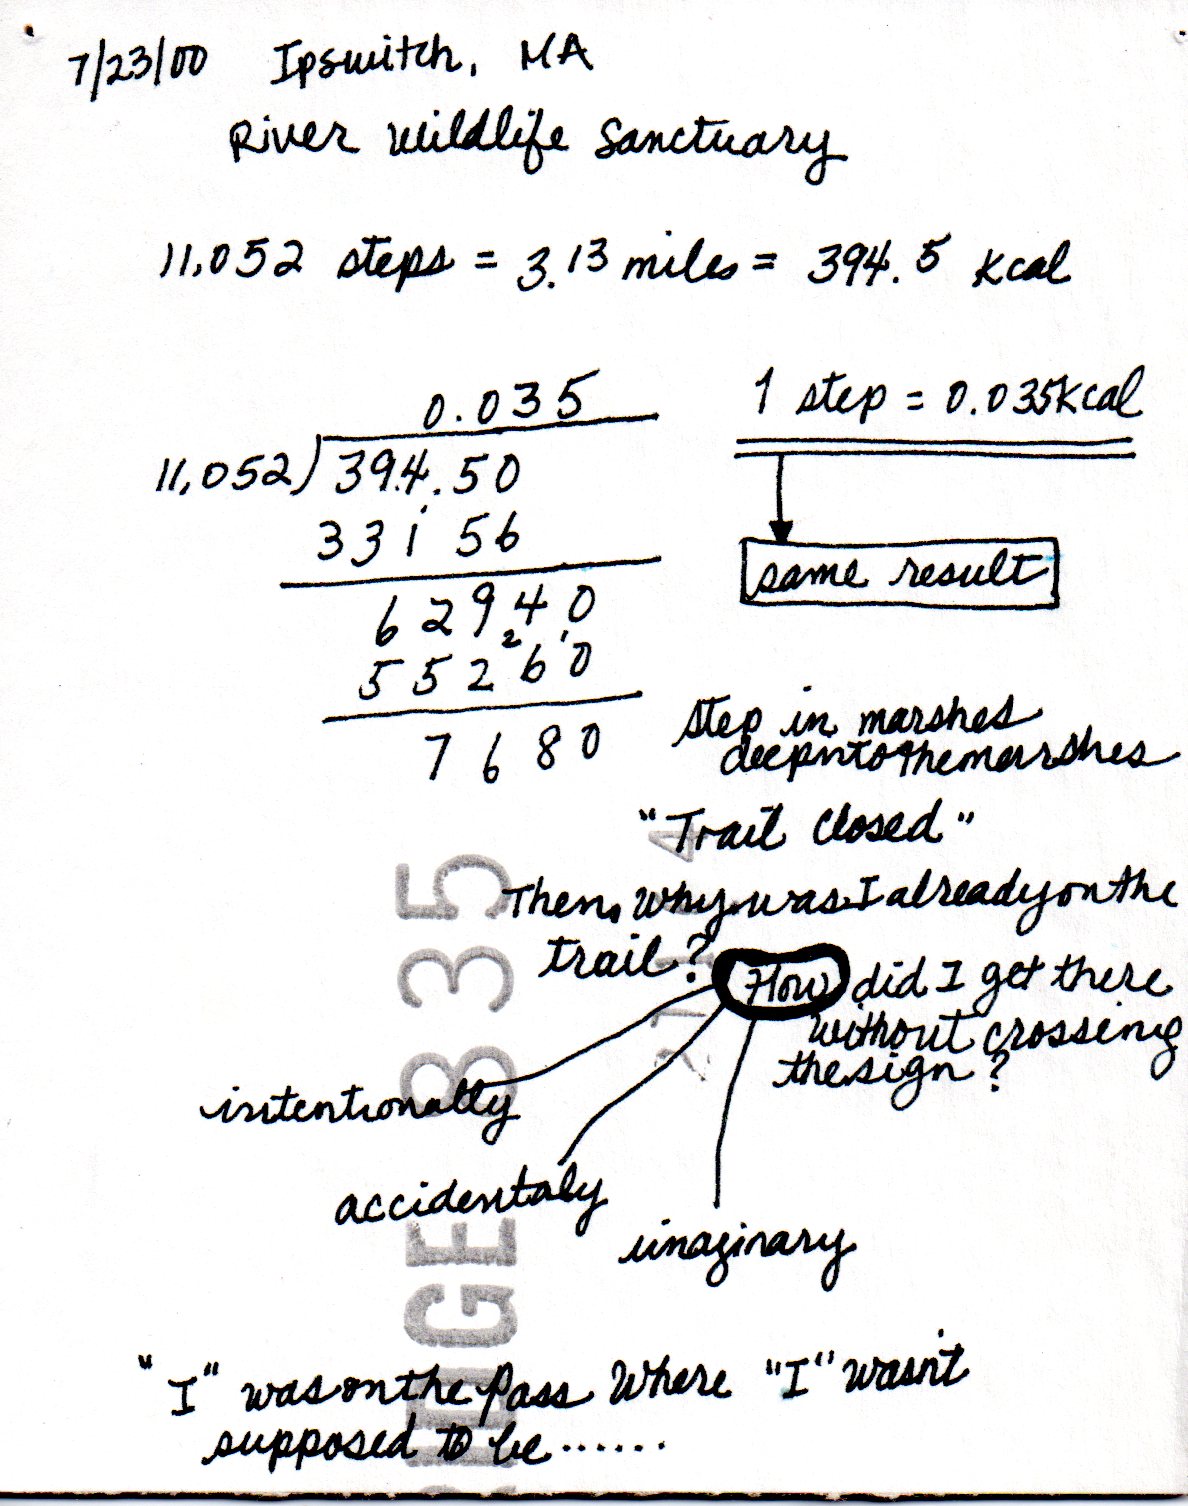 7/23/00 Ipswitch, MA
River Wildlife Sanctuary
11,052 steps = 3.13 miles = 394.5 Kcal
0.035
11,052) 394.50
33156
62940
55260
7680
1 step = 0.035Kcal
same result
step in marshes
deepintothemarshes
"Trail Closed"
Then, Why was I already on the
trail? How did I get there
without crossing
the sign?
intentionally
accidentaly
imaginary
"I" was on the pass Where "I" wasn't
supposed to be......
835